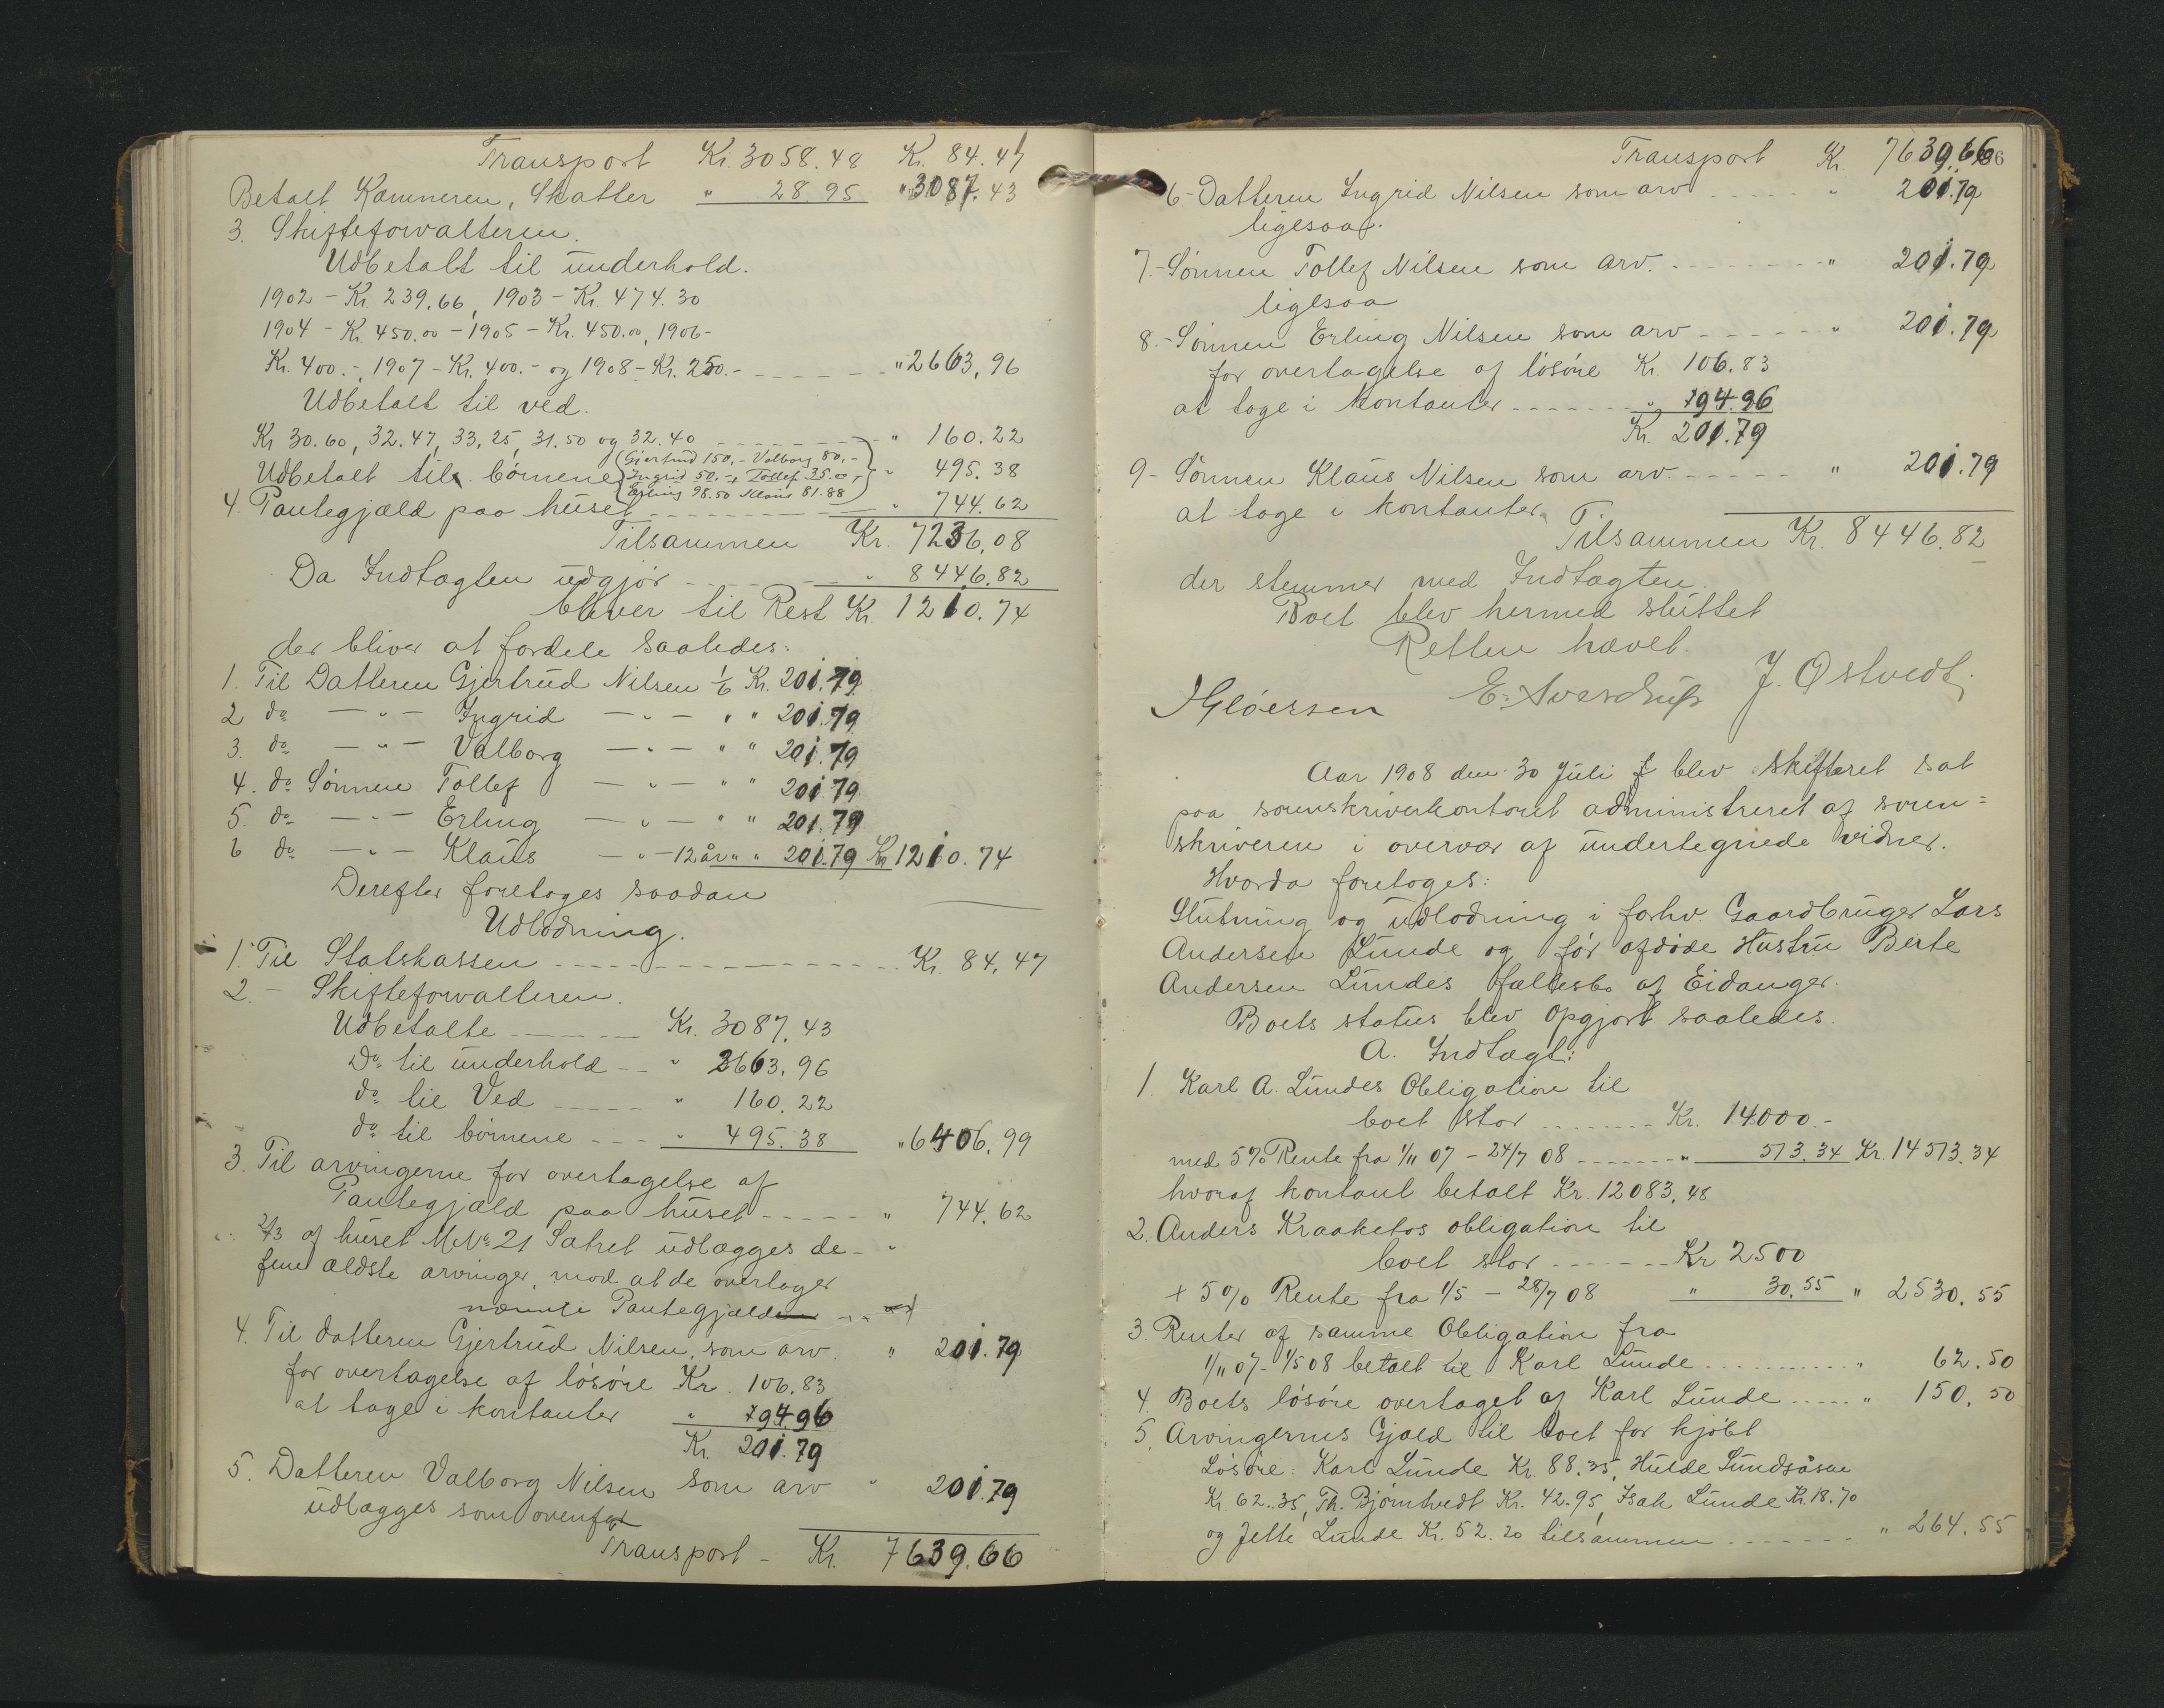 Transport Kr. 3058.48 Kr. 84.47
Betalt Kæmneren, Skatter " 28.95 " 3087.43
3. Skifteforvalteren.
Udbetalt til underhold.
1902 - Kr. 239.66, 1903 - Kr. 474.30
1904 - Kr. 450.00 - 1905 - Kr. 450.00, 1906 -
Kr. 400.-, 1907 - Kr. 400.- og 1908 - Kr. 250.- " 2663,96
Udbetalt til ved.
Kr 30.60, 32.47, 33,25, 31.50 og 32.40 " 160.22
(Gjertrud 150,- Valborg 80,-
Udbetalt til børnene Ingrid 50.-, Tollef 35.00, " 495.38
Erling 98.50 Klaus 81.88)
4. Pantegjæld paa huset " 744.62
Tilsammen Kr. 7236,08
Da Indtægten udgjør " 8446.82
bliver til Rest Kr. 1210.74
der bliver at fordele saaledes:
1. Til Datteren Gjertrud Nilsen 1/6 Kr. 201.79
2 do — " — Ingrid — " — " " 201.79
3. do — " — Valborg — " — " " 201.79
4. do Sønnen Tollef — " — " " 201.79
5. do — " — Erling — " — " " 201.79
6 do — " — Klaus — " — 12 år " " 201.79 Kr 1210.74
Derefter foretages saadan
Udlodning.
1. Til Statskassen Kr. 84.47
2. - Skifteforvalteren.
Udbetalte Kr. 3087.43
Do til underhold " 2663.96
do til Ved " 160.22
do til børnene " 495.38 " 6406.99
3. Til arvingerne for overtagelse af
Pantegjæld paa huset " 744.62
2/3 af huset M.No 21 Sætret udlægges de "
fem ældste arvinger, mod at de overtager
nævnte Pantegjæld
4. Til datteren Gjertrud Nilsen, som arv. " 201.79
for overtagelse af løsøre Kr. 106.83
at tage i kontanter " 94.96
Kr. 201.79
5. Datteren Valborg Nilsen som arv " 201.79
udlægges som ovenfor
Transport - Kr. 7639.66
Transport Kr. 7639.66
6.- Datteren Ingrid Nilsen som arv " 201.79
ligesaa.
7.- Sønnen Tollef Nilsen som arv. " 201.79
ligesaa
8.- Sønnen Erling Nilsen som arv " 201.79
for overtagelse af løsøre Kr. 106.83
at tage i kontanter " 94.96
Kr. 201.79
9- Sønnen Klaus Nilsen som arv. " 201.79
at tage i kontanter.
Tilsammen Kr. 8446.82
der stemmer med Indtægten.
Boet blev hermed sluttet
Retten hævet.
J Gløersen E. Sverdrup J. Østvedt.
Aar 1908 den 30 Juli blev skifteret sat
paa sorenskriverkontoret administreret af soren=
skriveren i overvær af undertegnede vidner.
Hvorda foretoges:
Slutning og udlodning i forhv. Gaardbruger Lars
Andersen Lunde og før afdøde Hustru Berte
Andersen Lundes fællesbo af Eidanger.
Boets status blev opgjort saaledes.
A. Indtægt:
1. Karl A. Lundes Obligation til
boet stor Kr. 14000.-
med 5% Rente fra 1/11 07 - 24/7 08 " 513.34 Kr. 14513.34
hvoraf kontant betalt Kr. 12083,48
2. Anders Kraaketos obligation til
boet stor Kr 2500
+ 5% Rente fra 1/5 - 28/7 08 " 30.55 " 2530.55
3. Renter af samme Obligation fra
1/11 07 - 1/5 08 betalt til Karl Lunde " 62.50
4. Boets løsøre overtaget af Karl Lunde " 150.50
5. Arvingernes Gjæld til boet for kjøbt
Løsøre: Karl Lunde Kr. 88.35, Hulde Lundsåsen
Kr. 62.35, Th. Bjørntvedt Kr. 42.95, Isak Lunde Kr. 18.70
og Jette Lunde Kr. 52.20 tilsammen " 264.55